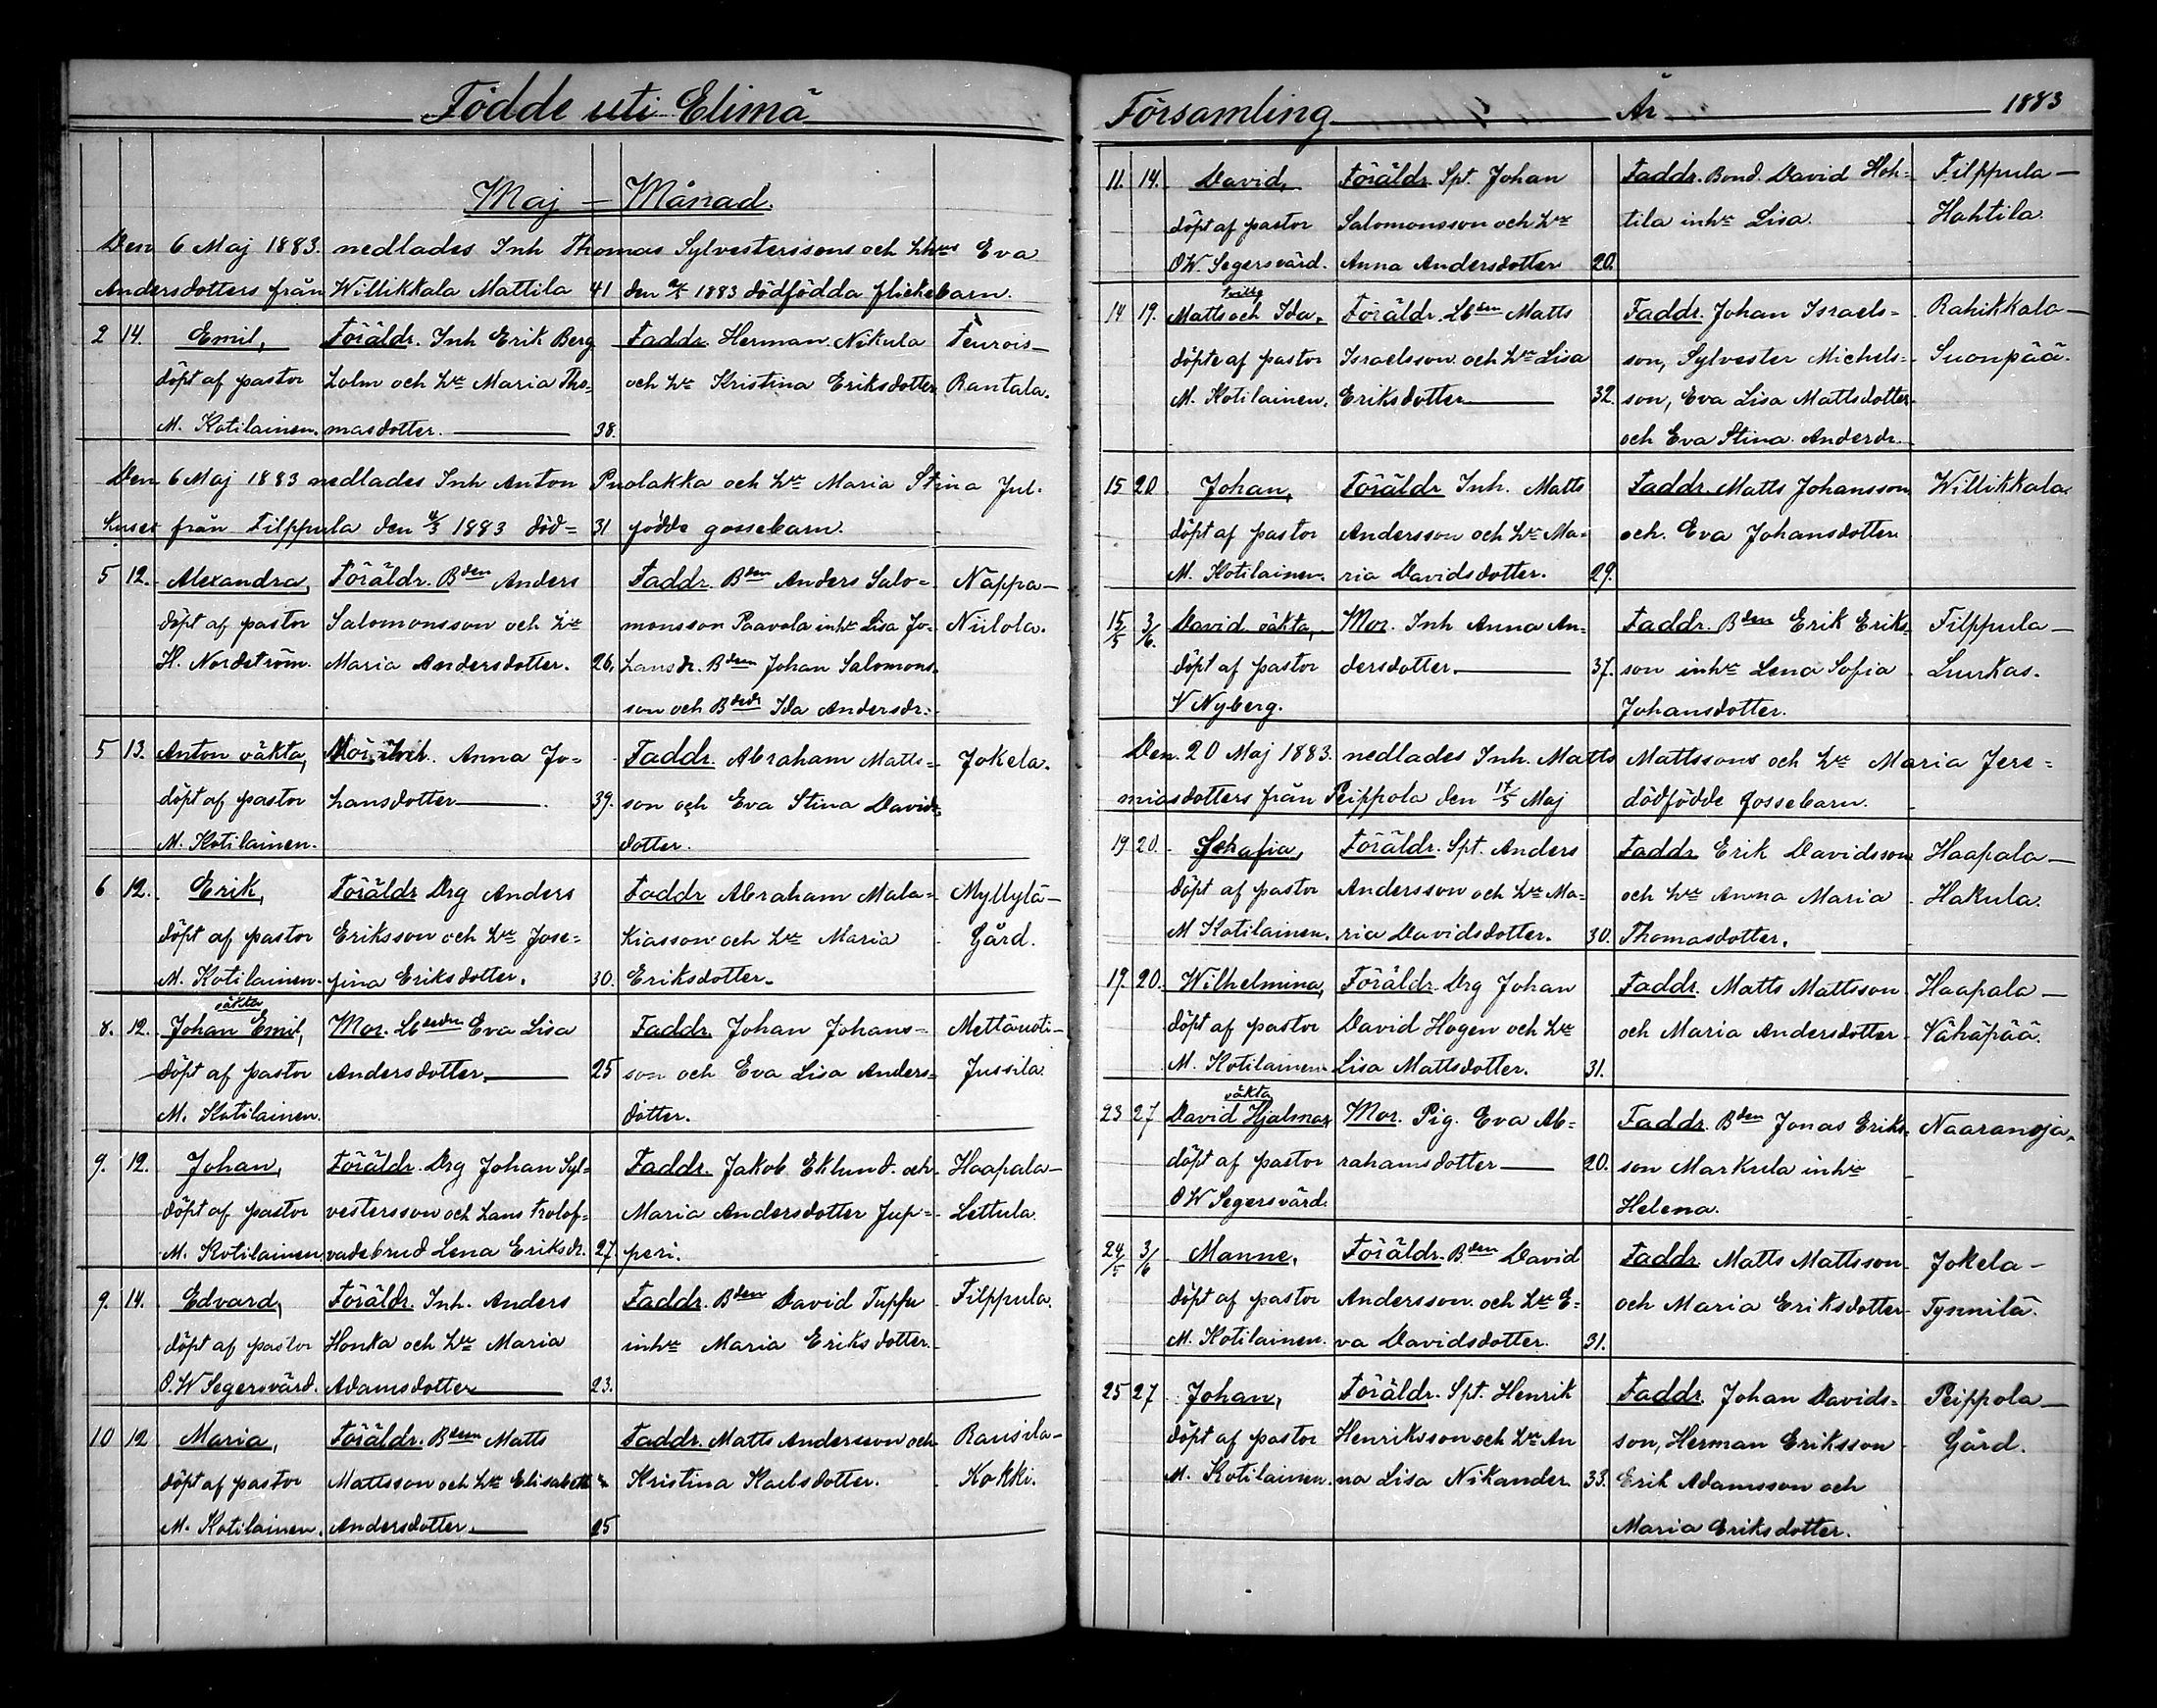 Födde uti Elimä
Maj – Månad.
Den 6 Maj 1883. nedlades Inh Thomas Sylvesterssons och Eva
Andersdotters från Willikkala Mattila 41 den 1883 dödfödda flickebarn.
2 14. Emil, Föräldr. Inh Erik Berg Faddr. Herman Nikula Teurois–
döpt af pastor holm och h:s Maria Tho= och h:s Kristina Eriksdotter Rantala.
M. Kotilainen. masdotter. — 38.
Den 6 Maj 1883 nedlades Inh Anton Puolakka och h:s Maria Stina Jul.
kuset från Filppula den 1883 död= 31 födde gossebarn.
5 12. Alexandra, Föräldr. Bden Anders Faddr. Bden Anders Salo= Nappa–
döpt af pastor Salomonsson och h:s monsson Paavola inh:s Lisa Jo= Niilola.
H. Nordström. Maria Andersdotter. 26. hansdr. Bden Johan Salomons=
son och Ida Andersdr.
5 13. Anton oäkta, Mor. Inh. Anna Jo= Faddr. Abraham Matts= Jokela.
döpt af pastor hansdotter — 39. son och Eva Stina Davids=
M. Kotilainen. dotter.
6 12. Erik, Föräldr Drg Anders Faddr Abraham Mala= Myllylä–
döpt af pastor Eriksson och h:s Jose= kiasson och h:s Maria Gård.
M. Kotilainen. fina Eriksdotter. 30. Eriksdotter.
oäkta
8. 12. Johan Emil, Mor. Eva Lisa Faddr. Johan Johans= Mettäuoti–
döpt af pastor Andersdotter. — 25 son och Eva Lisa Anders= Jussila.
M. Kotilainen. dotter.
9. 12. Johan, Föräldr. Drg Johan Syl= Faddr. Jakob Eklund och Haapala–
döpt af pastor vestersson och hans trolof= Maria Andersdotter Jup= Lettula.
M. Kotilainen. vadebrud Lena Eriksdr. 27. peri.
9. 14. Edvard, Föräldr. Inh. Anders Faddr. Bden David Tuppu Filppula.
döpt af pastor Honka och h:s Maria inh:s Maria Eriksdotter.
O.W Segersvärd. Adamsdotter — 23.
10 12 Maria, Föräldr. Bden Matts Faddr. Matts Andersson och Raussila–
döpt af pastor Mattsson och h:s Elisabeth Kristina Karlsdotter. Kokki.
M. Kotilainen. Andersdotter. — 25
Församling — År — 1883
11. 14. David, Föräldr. Spt. Johan Faddr. Bond. David Hoh= Filppula–
döpt af pastor Salomonsson och h:s tila inh:s Lisa. Hohtila.
O W. Segersvärd. Anna Andersdotter 20.
tvill.
14 19. Matts och Ida, Föräldr. Lbden Matts Faddr. Johan Israels= Rahikkala–
döpte af pastor Israelsson och h:s Lisa son, Sylvester Michels= Suonpää.
M. Kotilainen. Eriksdotter — 32. son, Eva Lisa Mattsdotter
och Eva Stina Andersdr.
15 20. Johan, Föräldr Inh. Matts Faddr. Matts Johansson Willikkala.
döpt af pastor Andersson och h:s Ma= och Eva Johansdotter
M. Kotilainen. ria Davidsdotter. 29.
15/5 3/6. David oäkta, Mor. Inh Anna An= Faddr. Bden Erik Eriks= Filppula–
döpt af pastor dersdotter — 37. son inh:s Lena Sofia Luukas.
V Nyberg. Johansdotter.
Den 20 Maj 1883. nedlades Inh. Matts Mattssons och h:s Maria Jere=
miasdotters från Peippola den 17/5 Maj dödfödde gossebarn.
19 20. Serafia, Föräldr. Spt. Anders Faddr Erik Davidsson Haapala–
döpt af pastor Andersson och h:s Ma= och h:s Anna Maria Hakula.
M Kotilainen. ria Davidsdotter. 30. Thomasdotter.
19. 20. Wilhelmina, Föräldr. Drg Johan Faddr. Matts Mattsson Haapala–
döpt af pastor David Hogen och h:s och Maria Andersdotter Vähäpää.
M. Kotilainen. Lisa Mattsdotter. 31.
oäkta
23 27 David Hjalmar, Mor. Pig. Eva Ab= Faddr. Bden Jonas Eriks= Naaranoja.
döpt af pastor rahamsdotter — 20. son Markula inh:s
O W Segersvärd. Helena.
24/5 3/6 Manne, Föräldr. Bden David Faddr. Matts Mattsson Jokela–
döpt af pastor Andersson och h:s E= och Maria Eriksdotter Tynnilä.
M. Kotilainen. va Davidsdotter. 31.
25 27 Johan, Föräldr. Spt. Henrik Faddr. Johan Davids= Peippola–
döpt af pastor Henriksson och h:s An son, Herman Eriksson Gård.
M. Kotilainen. na Lisa Nikander 33. Erik Adamsson och
Maria Eriksdotter.